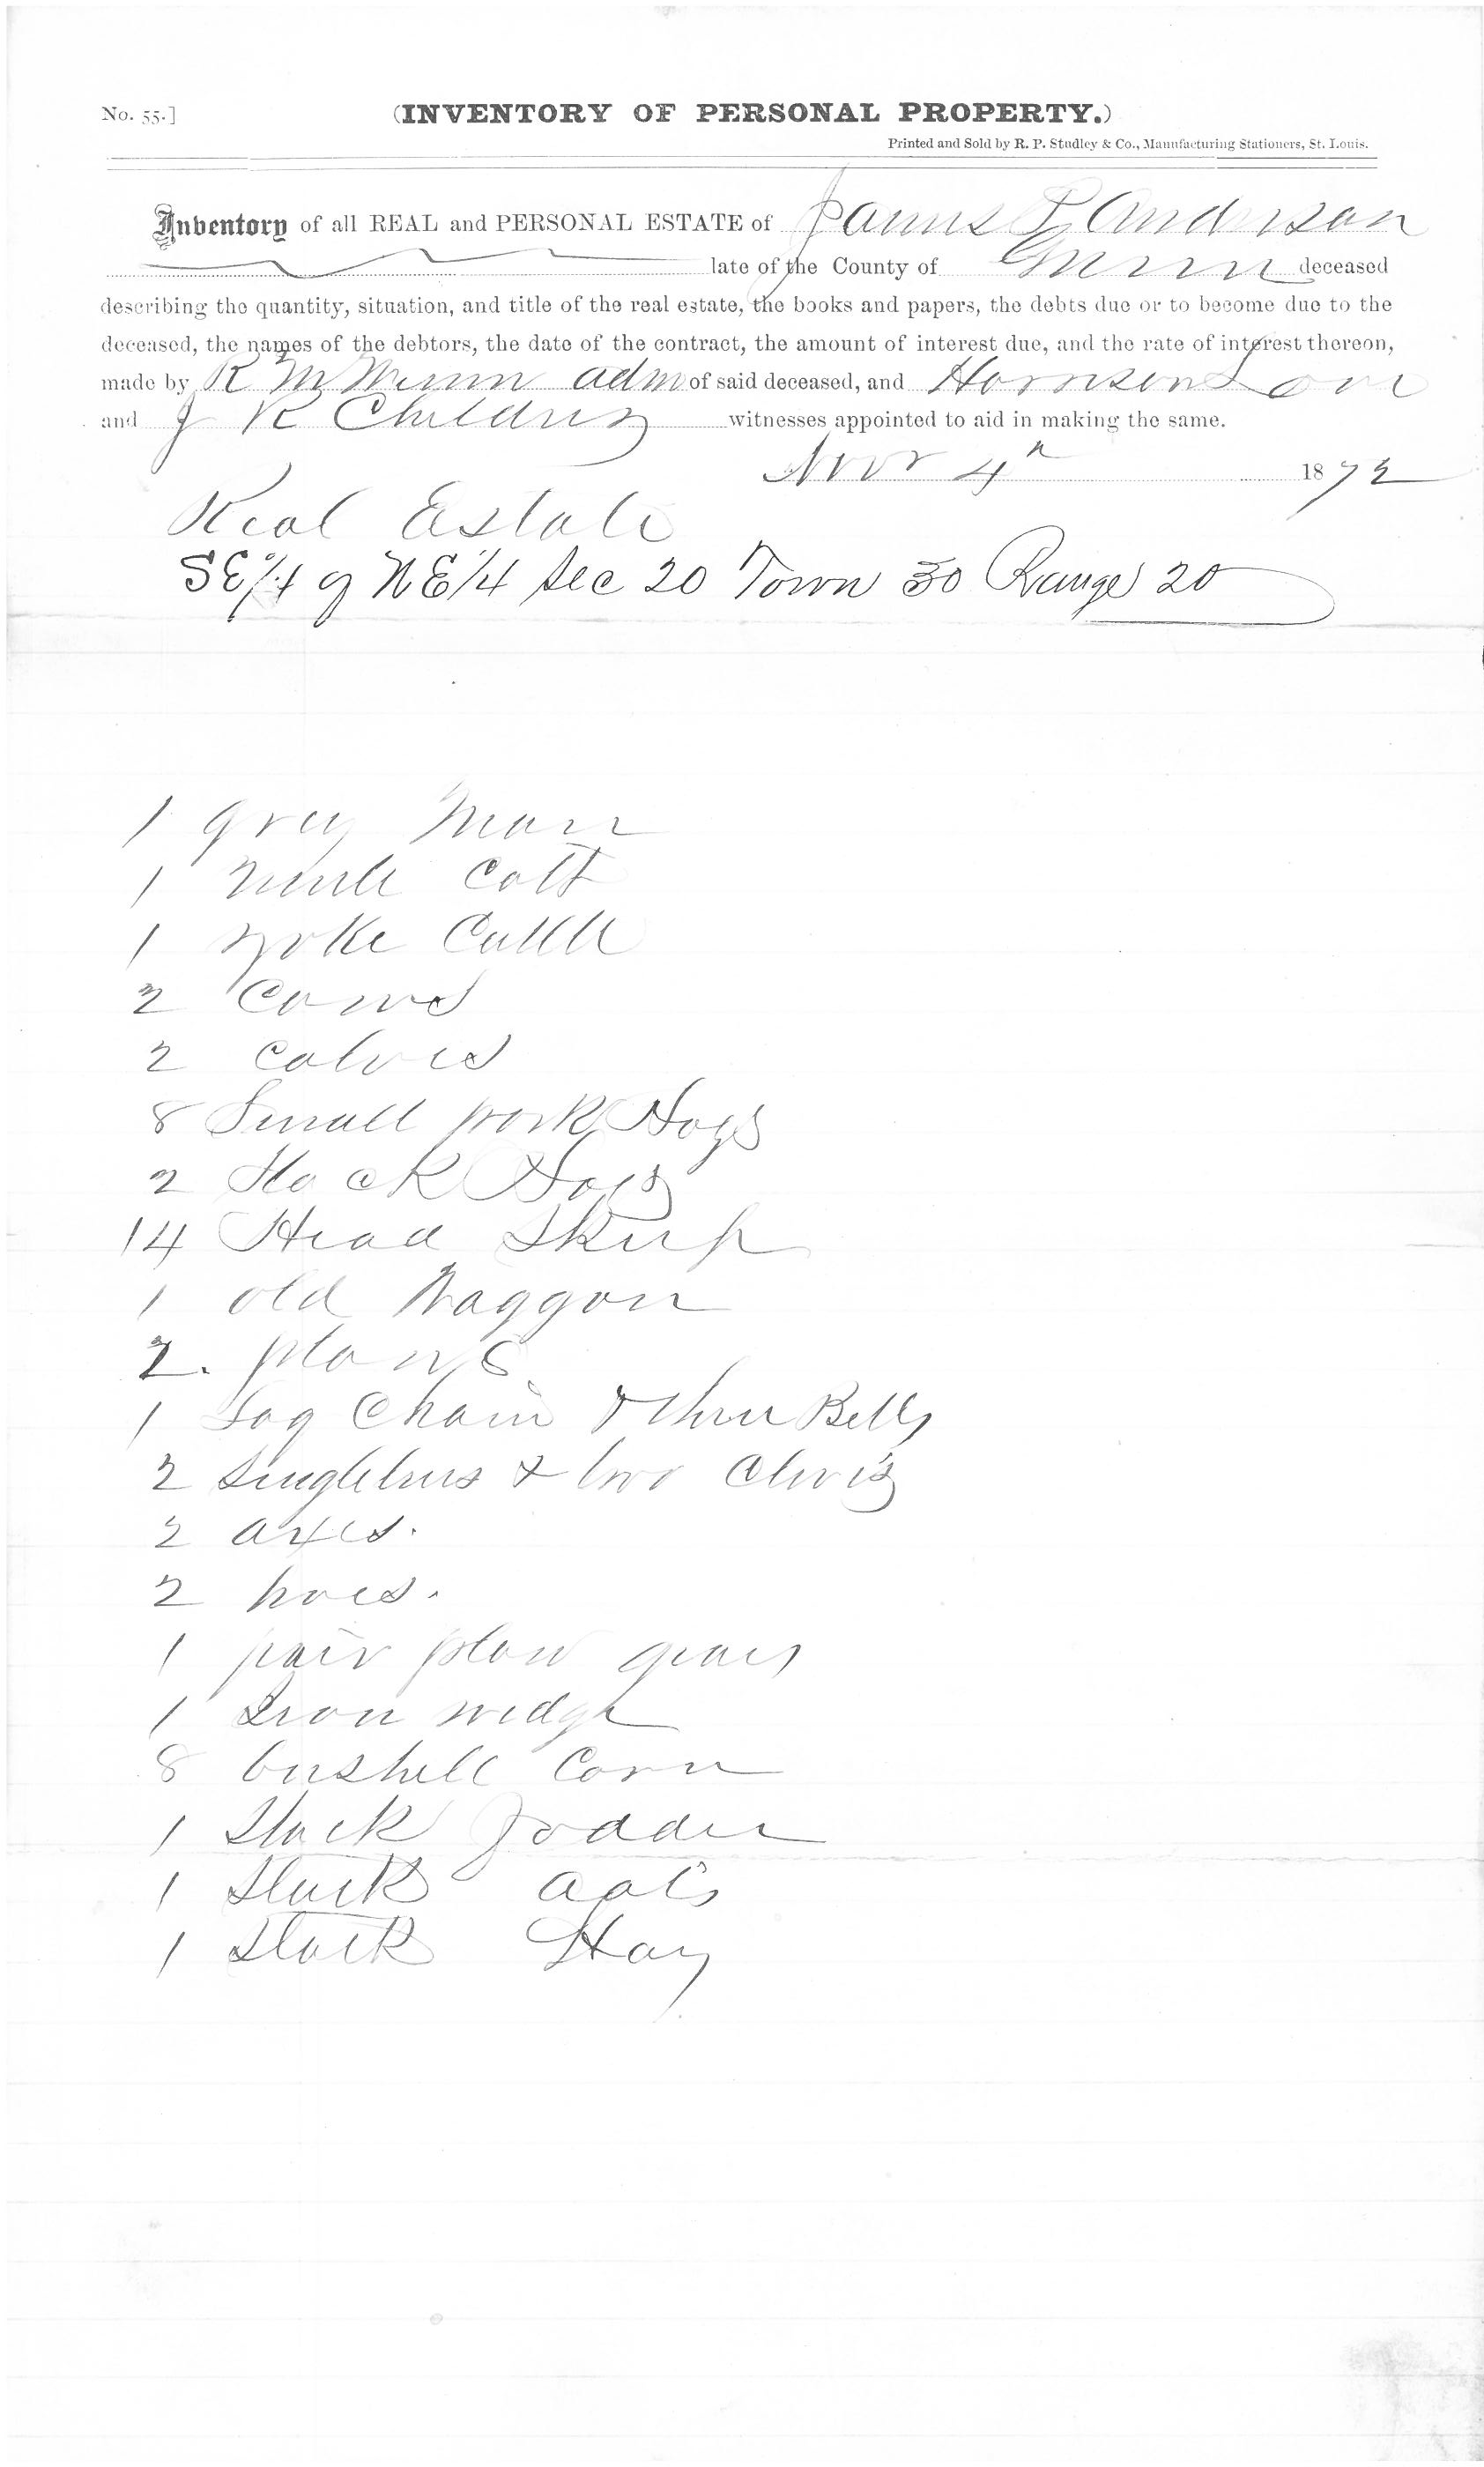 No. 55.]
(INVENTORY OF PERSONAL PROPERTY.)
Printed and Sold by R. P. Studley & Co., Manufacturing Stationers, St. Louis.
Inventory of all REAL and PERSONAL ESTATE of James L Anderson
late of the County of Green deceased
describing the quantity, situation, and title of the real estate, the books and papers, the debts due or to become due to the
deceased, the names of the debtors, the date of the contract, the amount of interest due, and the rate of interest thereon,
made by R M adm of said deceased, and Harrison Love
and J R Childres witnesses appointed to aid in making the same.
Novr 4th 1872
Real Estate
SE 1/4 of NE 1/4 Sec 20 Town 30 Range 20
1 grey Mare
1 Mule Colt
1 yoke Cattle
2 Cows
2 Calves
8 Small pork Hogs
2 Stock Hogs
14 Head Sheep
1 old Waggon
2. plows
1 Log Chain & three Bells
2 Singletrees & two Clevis
2 axes.
2 hoes.
1 pair plow gears
1 Iron wedge
8 bushell Corn
1 Stack Fodder
1 Stack oats
1 Stack Hay